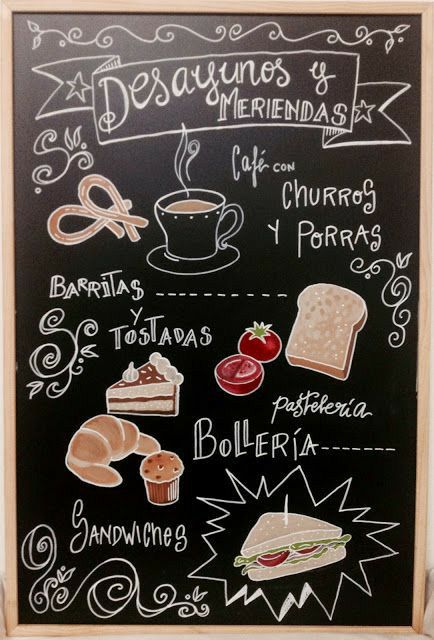 Desayunos y
MERIENDAS
Café con
CHURROS
Y PORRAS
BARRITAS
Y
TOSTADAS
pastelería
BOLLERÍA
SANDWICHES